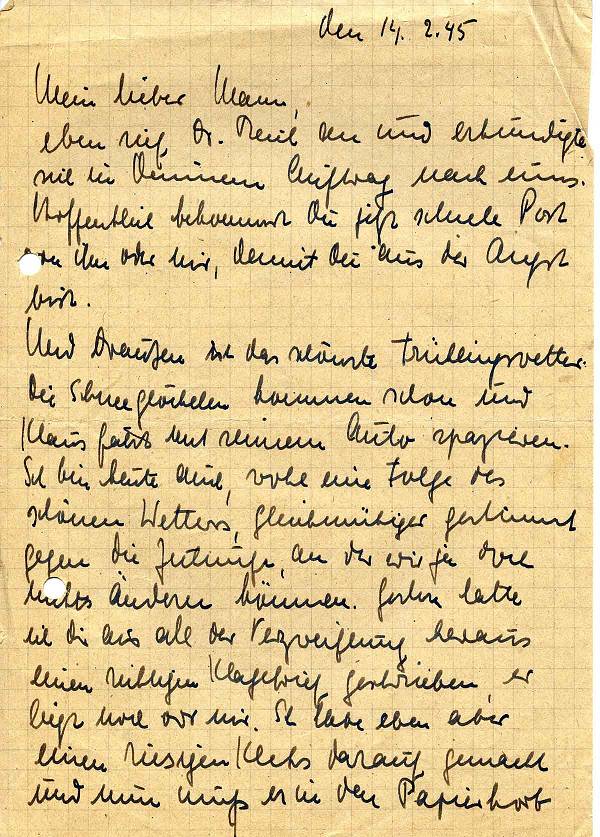 den 14. 2. 45
Mein lieber Mann,
eben rief Dr. an und erkundigte
sich in Deinem Auftrag nach uns.
Hoffentlich bekommst Du jetzt schnell Post
von ihm oder mir, damit Du aus der Angst
bist.
Und Draußen ist das schönste Frühlingswetter.
Die Schneeglöckchen kommen schon und
Klaus fährt mit seinem Auto spazieren.
Ich bin heute auch, wohl eine Folge des
schönen Wetters, gleichmütiger gestimmt
gegen die, an der wir ja doch
nichts ändern können. Gestern hatte
ich dir aus all der Verzweiflung heraus
einen richtigen Klagebrief geschrieben, er
liegt noch vor mir. Ich habe eben aber
einen riesigen Klecks darauf gemacht
und nun muß er in den Papierkorb